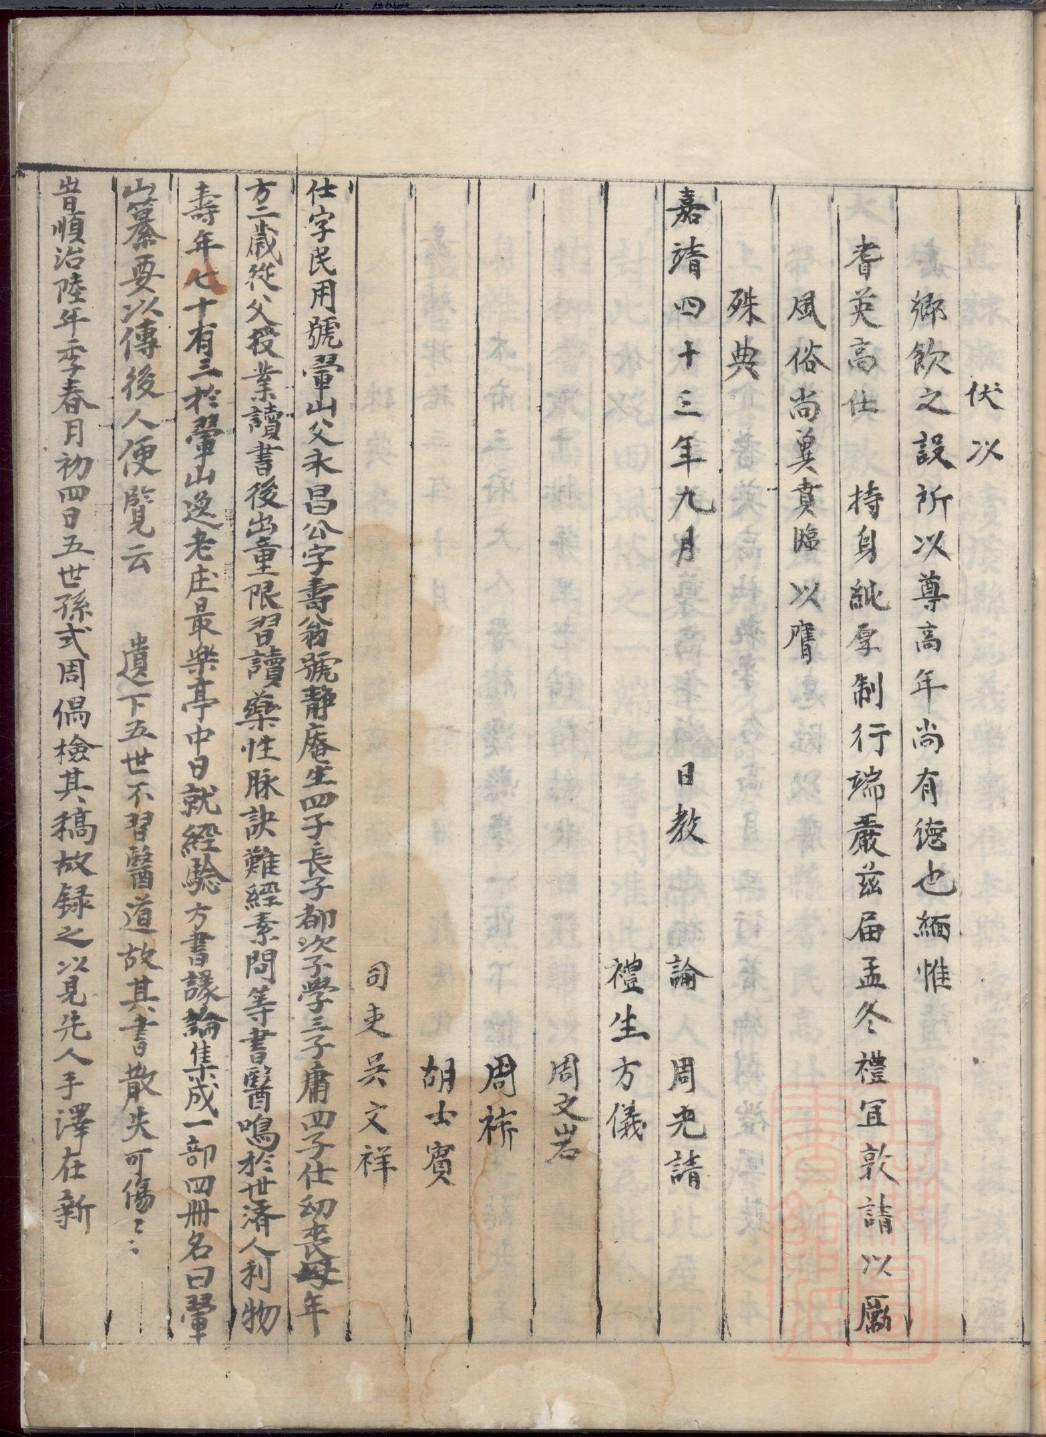 伏以
鄉飲之設所以尊高年尚有德也緬惟
耆英高仕 持身純厚制行端嚴茲届孟冬禮宜敦請以厲
風俗尚兾賁臨以膺
殊典
嘉靖四十三年九月 日教諭 周光請
禮生方儀
周文岩
周祚
胡士賓
司吏吳文祥
仕字民用號翬山父永昌公字壽翁號靜庵生四子長子都次子學三子庸四子仕幼丧母年
方二歲從父授業讀書後出童限習讀藥性脉訣難經素問等書醫鳴於世濟人利物
壽年七十有三於翬山逸老庄最樂亭中日就經驗方書議論集成一部四冊名曰翬
山纂要以傳後人便覽云 遺下五世不習醫道故其書散失可傷〻〻
昔順治陸年季春月初四日五世孫式周偶檢其稿故録之以見先人手澤在新